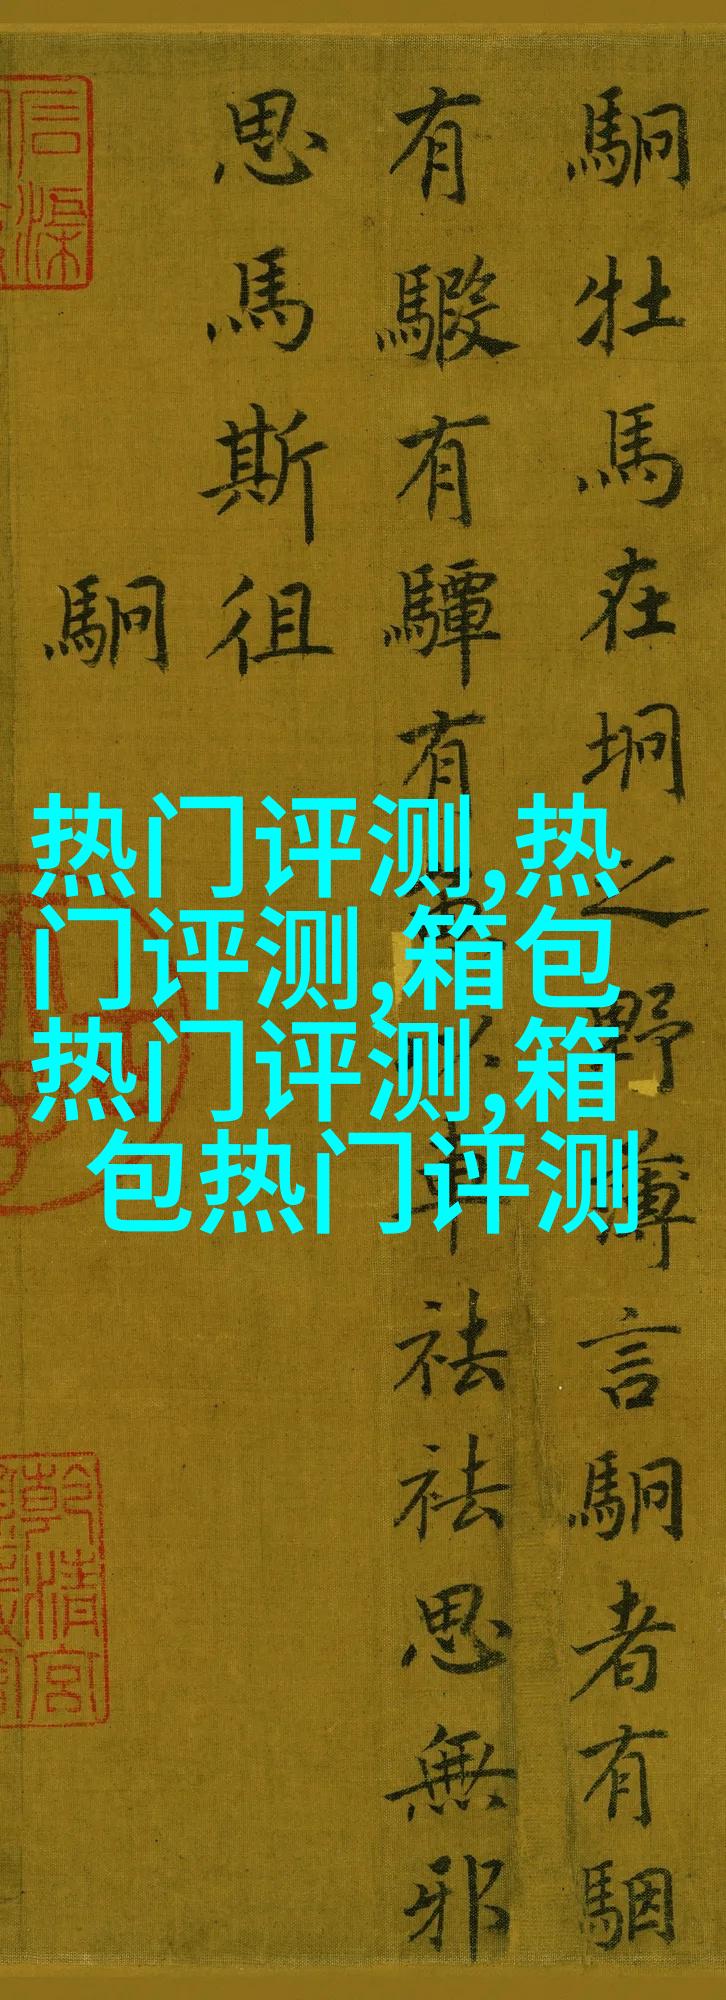 駉牡馬在坰之野薄言駉者有駰
有騢有驔有魚以車祛祛思無邪
思馬斯徂
駉
热门评测,热
门评测,箱包
热门评测,箱
包热门评测
乾清宮